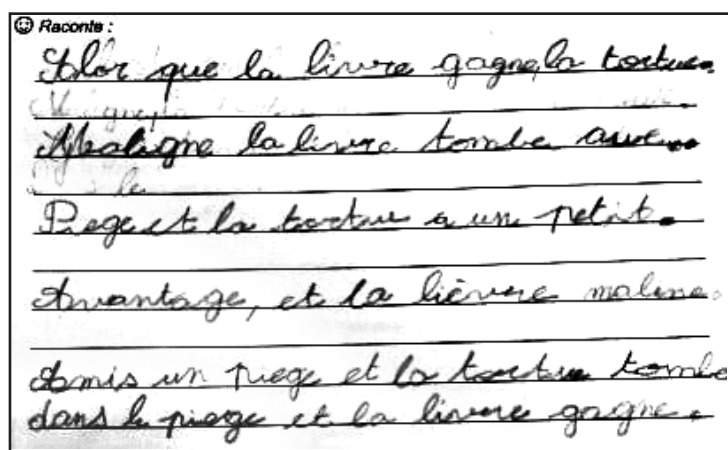 Raconte :
Alor que la livre gagne, la tortue.
Maligne la livre tombe auve..
Piege et la tortue a un petit.
Avantage, et la lièvre maline.
Amis un piege et la tortue tombe
dans le piege et la livre gagne.